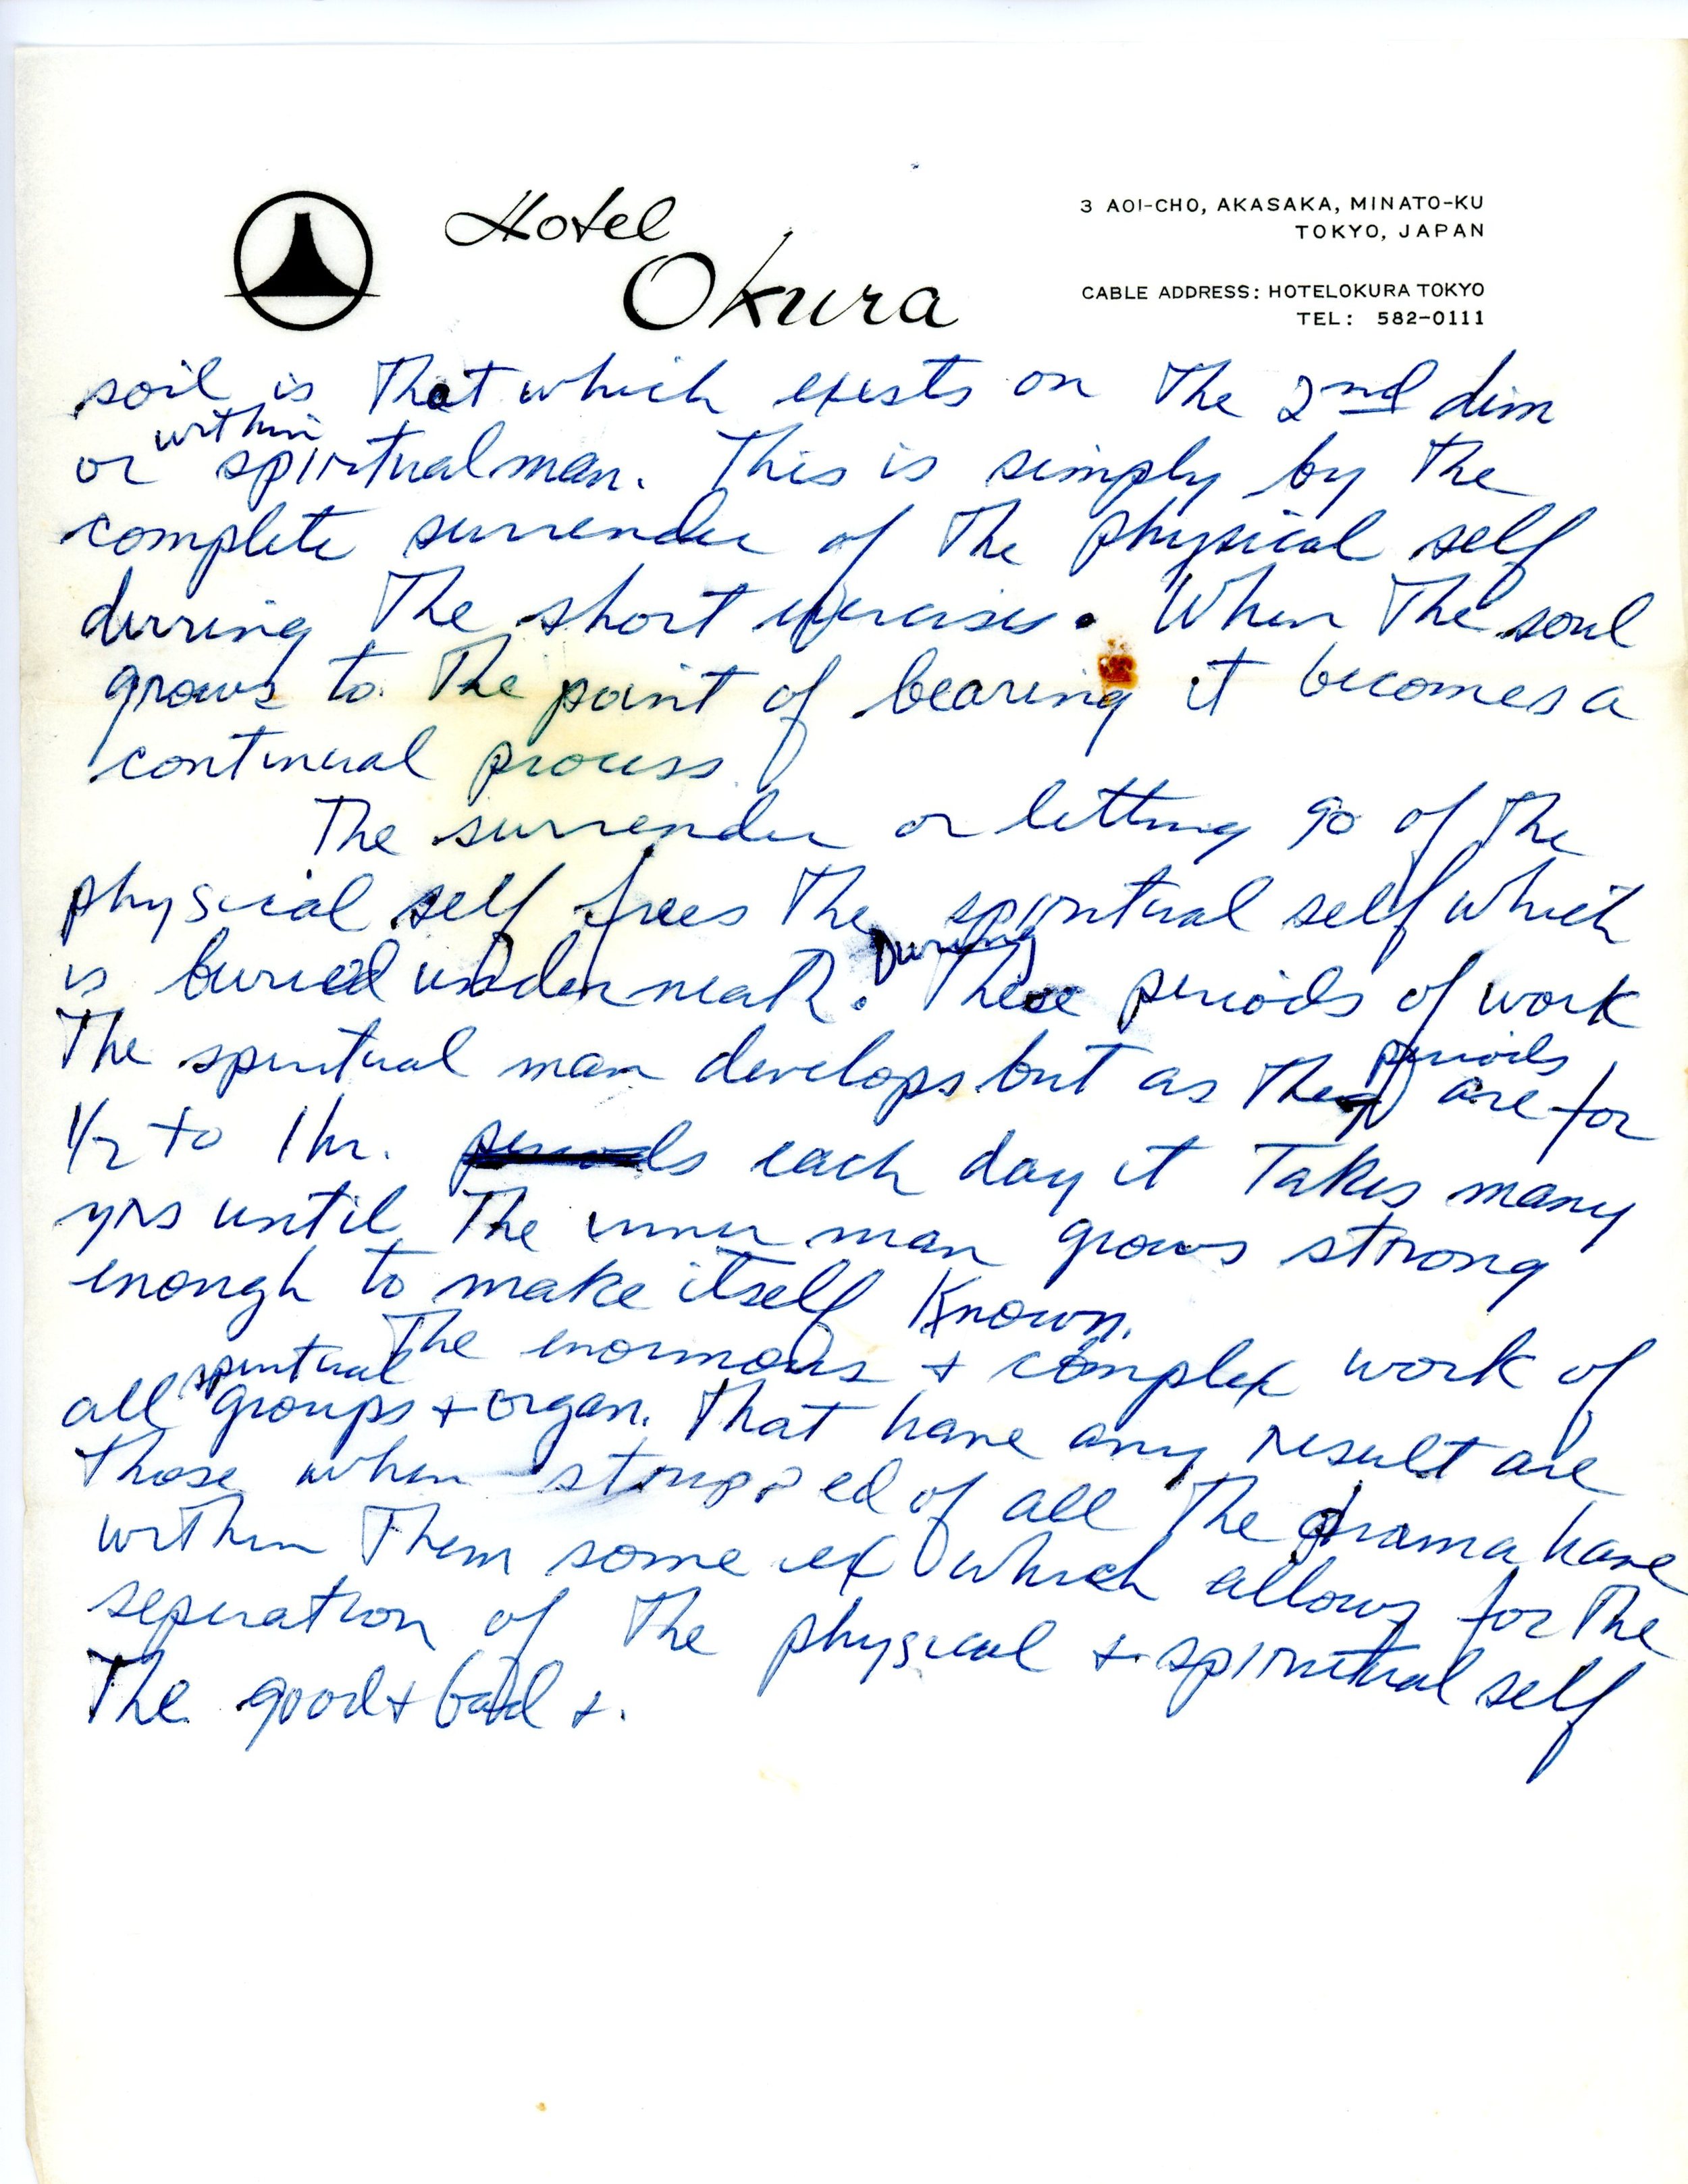 Hotel
Okura
3 AOI-CHO, AKASAKA, MINATO-KU
TOKYO, JAPAN
CABLE ADDRESS: HOTELOKURA TOKYO
TEL: 582-0111
soil is that which exists on the 2nd dim
within
or spiritual man. This is simply by the
complete surrender of the physical self
durring the short exercises. When the soul
grows to the point of bearing it becomes a
continual process
The surrender or letting go of the
physical self frees the spiritual self which
is buried underneath. During These periods of work
The spiritual man develops but as the periods are for
1/2 to 1 hr. periods each day it takes many
yrs until the inner man grows strong
enough to make itself known.
The enormous + complex work of
all spiritual groups + organ. that have any result are
those when stripped of all the drama have
within them some ex which allows for the
seperation of the physical + spiritual self
The good + bad +.